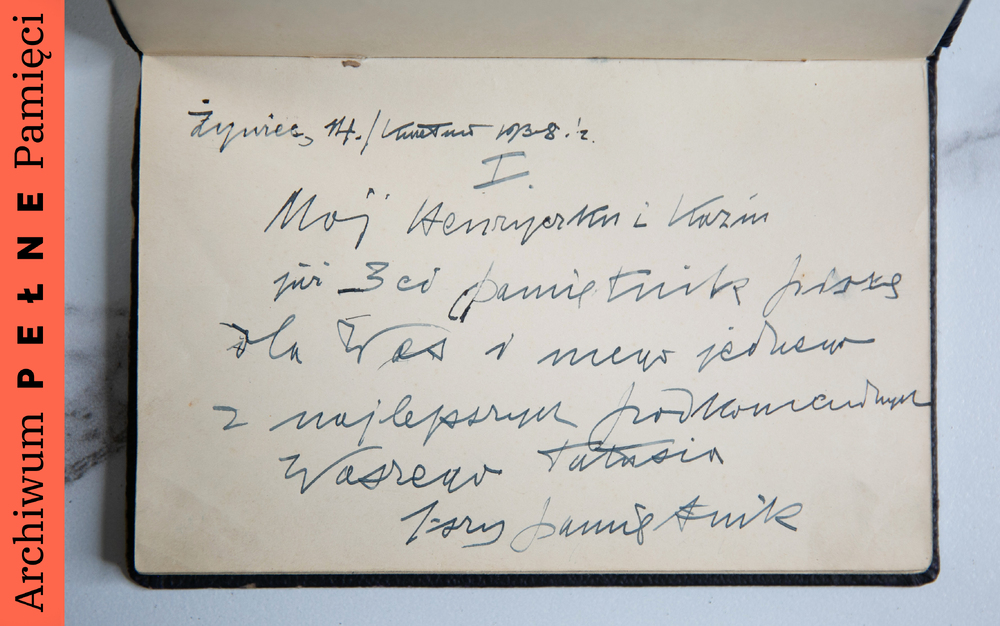 Archiwum PEŁNE Pamięci
Żywiec, 14./Kwietnia 1938.r.
I.
Mój Henryczku i Kaziu
już 3ci pamiętnik piszę
dla Was i mego jednego
z najlepszych podkomendnych
Waszego Tatusia
I-szy pamiętnik